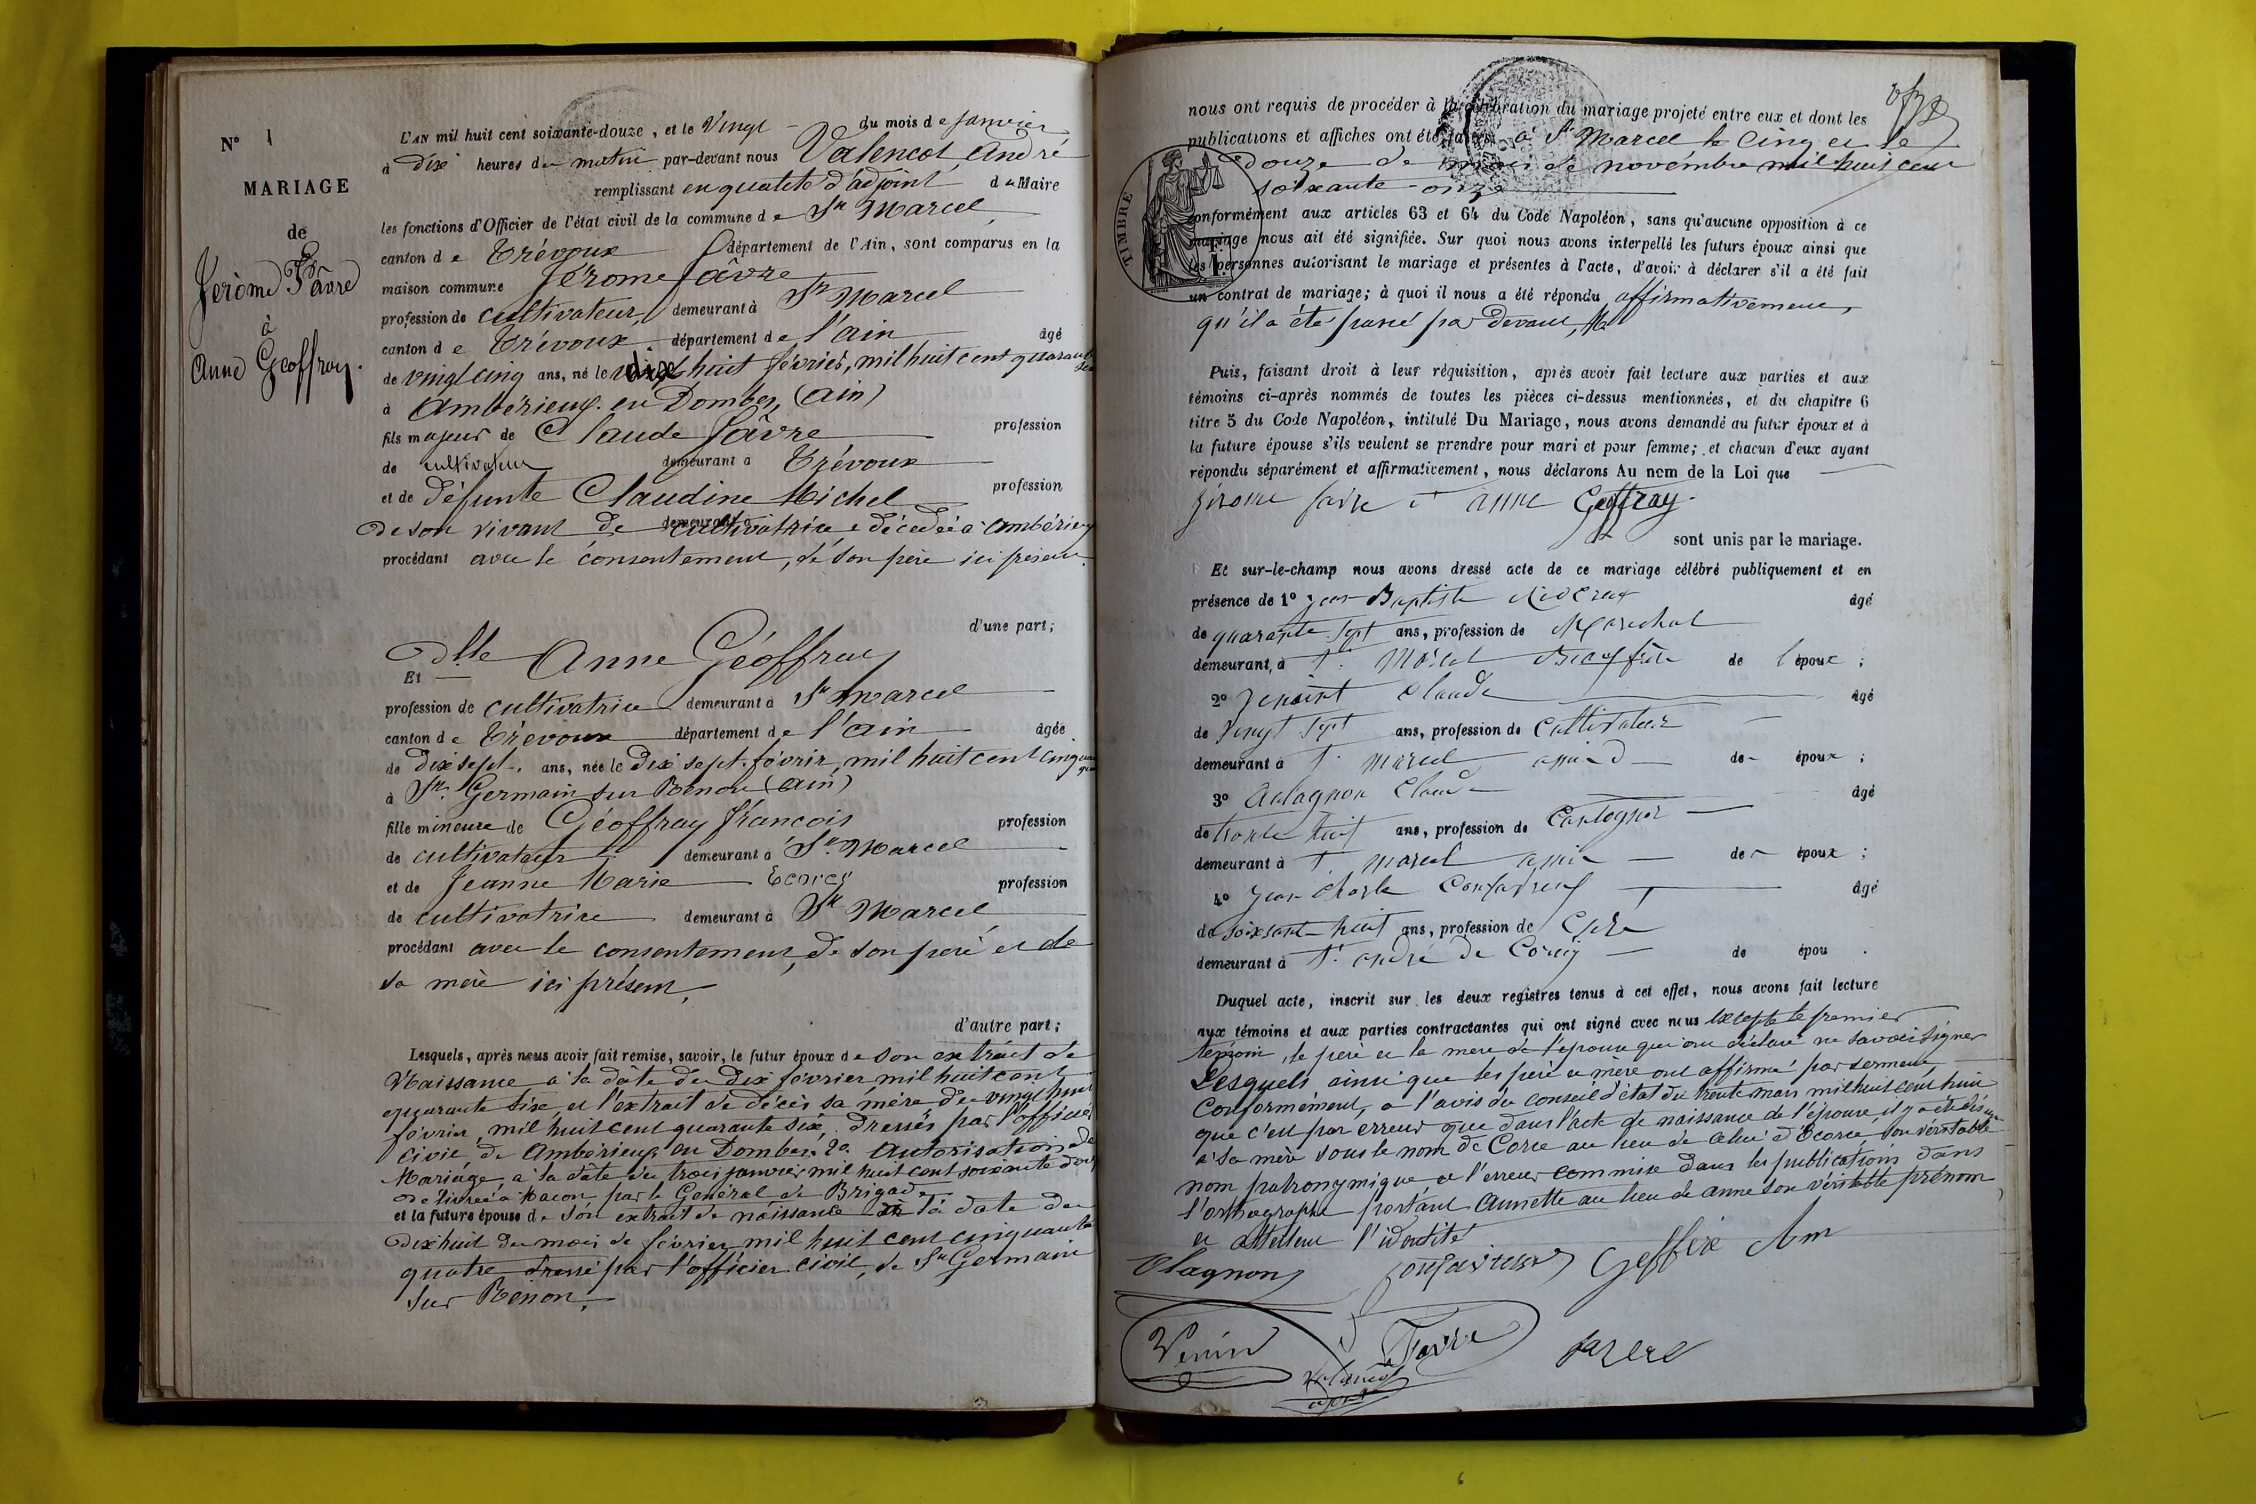 N° 1
MARIAGE
de
Jérôme Fâvre
à
Anne Geoffray.
L'AN mil huit cent soixante-douze, et le Vingt du mois de Janvier
à dix heures du matin par-devant nous Valencot André
remplissant en qualité d'adjoint du Maire
les fonctions d'Officier de l'état civil de la commune de St Marcel
canton de Trévoux département de l'Ain, sont comparus en la
maison commune Jérome fâvre
profession de cultivateur, demeurant à St Marcel
canton de Trévoux, département de l'ain âgé
de vingt cinq ans, né le dix huit février, mil huit cent quarante
à Ambérieux en Dombes, (Ain)
fils majeur de Claude fâvre profession
de cultivateur demeurant à Trévoux
et de défunte Claudine Michel profession
de son vivant de demeurant à cultivatrice décédée à ambérieux
procédant avec le consentement, de son père ici présent.
d'une part;
Et Dlle Anne Géoffray
profession de cultivatrice demeurant à St Marcel
canton de Trévoux département de l'ain âgée
de dix sept. ans, née le dix sept. février, mil huit cent cinquante
à St. Germain sur Renon (ain)
fille mineure de Géoffray françois profession
de cultivateur demeurant à St. Marcel
et de Jeanne Marie Ecorcy profession
de cultivatrice demeurant à St Marcel
procédant avec le consentement, de son père et de
sa mère ici présent,
d'autre part;
Lesquels, après nous avoir fait remise, savoir, le futur époux de son extrait de
Naissance à la dâte du dix février mil huit cent
quarante six, et l'extrait de décès sa mère du vingt huit
février, mil huit cent quarante six, dressés par l'officier
civil de Ambérieux en Dombes, 2o Autorisation de
Mariage à la dâte du trois janvier mil huit cent soixante douze
délivrée à Macon par le Général de Brigade
et la future épouse de son extrait de naissance à la date du
dix huit du mois de février mil huit cent cinquante
quatre dressé par l'officier civil, de St Germain
sur Renon,
nous ont requis de procéder à la célébration du mariage projeté entre eux et dont les
publications et affiches ont été faites à St Marcel le Cinq et le
douze de mois de novembre mil huit cent
soixante-onze
conformément aux articles 63 et 64 du Code Napoléon, sans qu'aucune opposition à ce
mariage nous ait été signifiée. Sur quoi nous avons interpellé les futurs époux ainsi que
les personnes autorisant le mariage et présentes à l'acte, d'avoir à déclarer s'il a été fait
un contrat de mariage; à quoi il nous a été répondu affirmativement,
qu'il a été passé par devant, Me
TIMBRE
Puis, faisant droit à leur réquisition, après avoir fait lecture aux parties et aux
témoins ci-après nommés de toutes les pièces ci-dessus mentionnées, et du chapitre 6
titre 5 du Code Napoléon, intitulé Du Mariage, nous avons demandé au futur époux et à
la future épouse s'ils veulent se prendre pour mari et pour femme; et chacun d'eux ayant
répondu séparément et affirmativement, nous déclarons Au nom de la Loi que
Jérome favre et anne Geoffray.
sont unis par le mariage.
Et sur-le-champ nous avons dressé acte de ce mariage célébré publiquement et en
présence de 1° jean Baptiste âgé
de quarante sept ans, profession de Marechal
demeurant, à St. Marcel Beaufrère de l'époux;
2° Claude âgé
de Vingt sept ans, profession de Cultivateur
demeurant à St. Marcel ami de époux;
3° Claude âgé
de trente huit ans, profession de
demeurant à St. Marcel ami de époux;
4° Jean Charle âgé
de soixante huit ans, profession de Curé
demeurant à St. andré de Corcy de épou.
Duquel acte, inscrit sur les deux registres tenus à cet effet, nous avons fait lecture
aux témoins et aux parties contractantes qui ont signé avec nous excepté le premier
témoin, le père et la mère de l'épouse qui ont déclaré ne savoir signer
Lesquels, ainsi que les père et mère ont affirmé par serment
Conformément, a l'avis du conseil d'état du trente mars mil huit cent huit
que c'est par erreur que dans l'acte de naissance de l'épouse il y a été désigné
sa mère sous le nom de Corce au lieu de celui d'Ecorce, son véritable
nom patronymique, et l'erreur commise dans les publications dans
l'orthographe portant Annette au lieu de anne son véritable prénom
et attestent l'identité
Favre
Valencot
adjoint